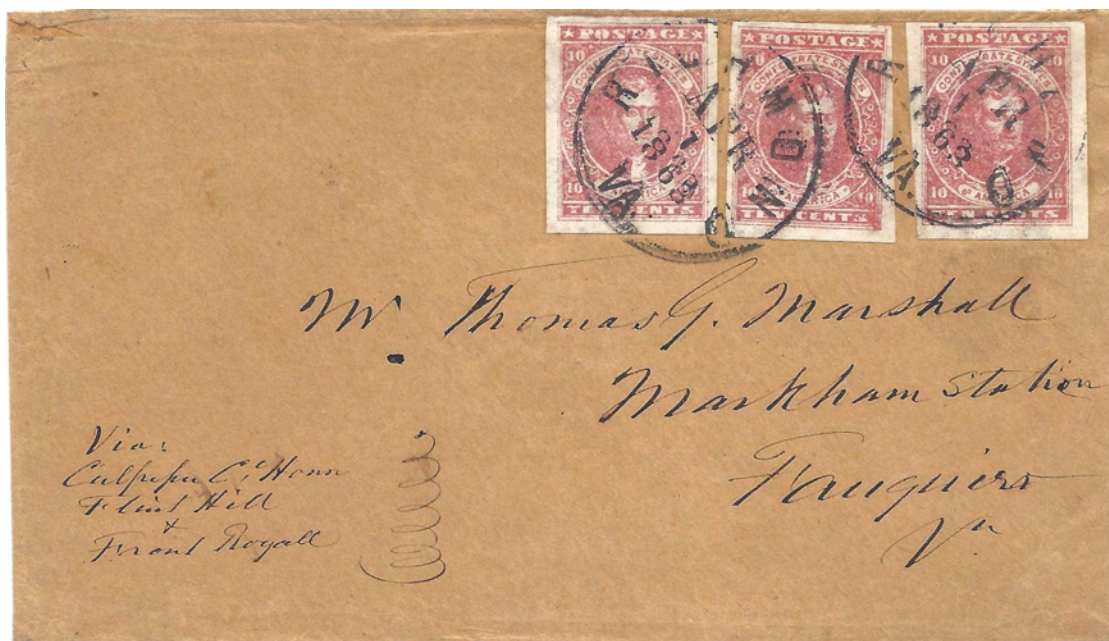 ★ POSTAGE ★
10 10
CONFEDERATE STATES
10 10
OF AMERICA
TEN CENTS
★ POSTAGE ★
10 10
CONFEDERATE STATES
10 10
OF AMERICA
TEN CENTS
★ POSTAGE ★
10 10
CONFEDERATE STATES
10 10
OF AMERICA
TEN CENTS
RICHMOND
APR
1
1863
VA.
APR
1
1863
VA.
Mr. Thomas G. Marshall
Markham Station
Fauquier
Va
Via:
Culpeper C. House
Flint Hill
+
Front Royall